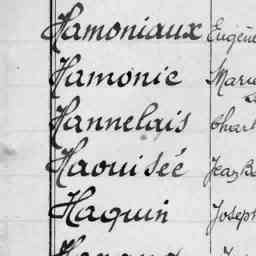 Hamoniaux Eugène
Hamonic Marie
Hannelais Charl
Haouisée Jean B
Haquin Joseph